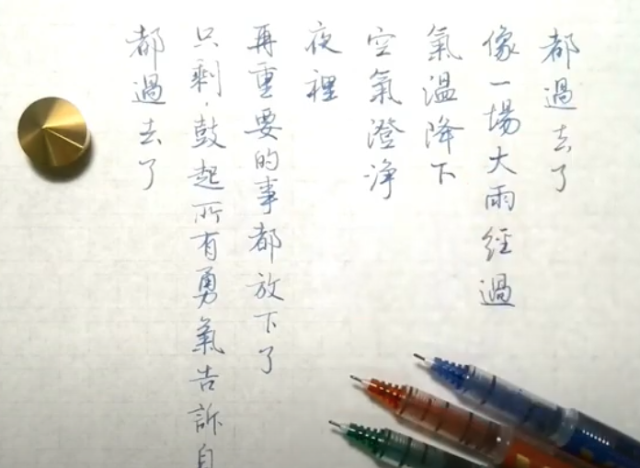 都過去了
像一場大雨經過
氣溫降下
空氣澄净
夜裡
再重要的事都放下了
只剩,鼓起所有勇氣告訴自
都過去了